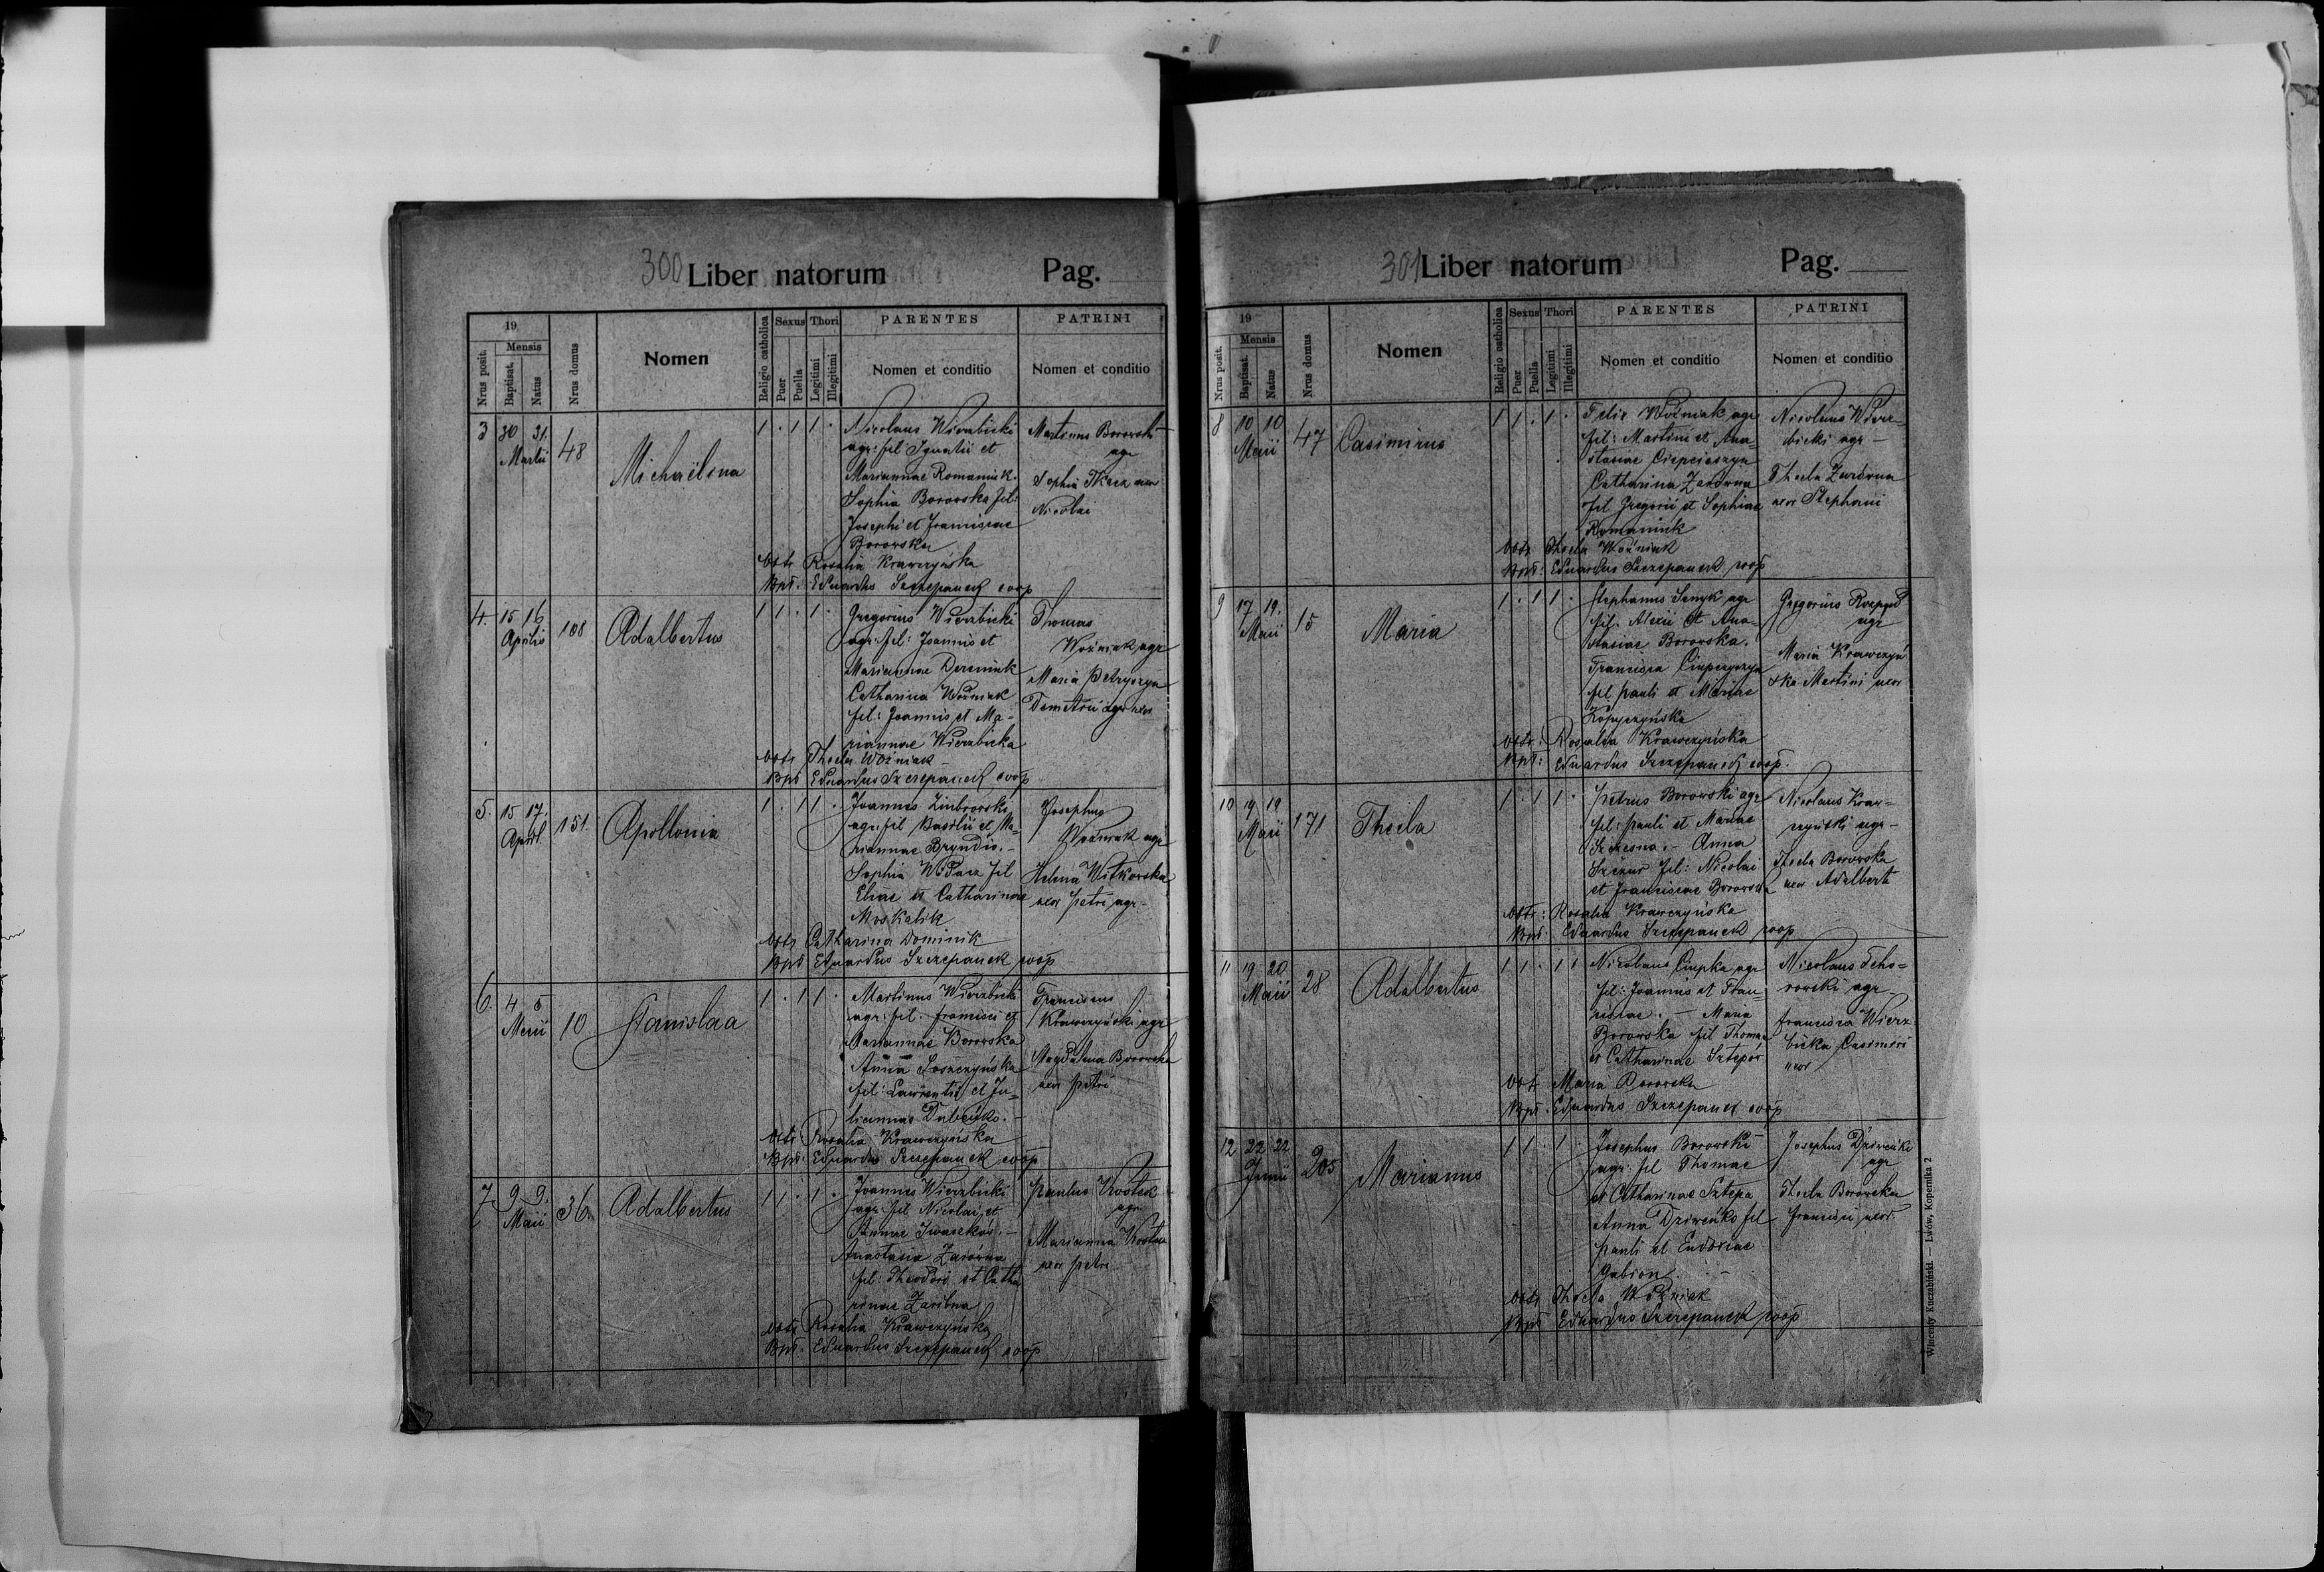 300 Liber natorum Pag.
19
Nrus posit.
Mensis
Baptisat.
Natus
Nrus domus
Nomen
Religio catholica
Sexus
Puer
Puella
Thori
Legitimi
Illegitimi
PARENTES
Nomen et conditio
PATRINI
Nomen et conditio
3 30 31. Martii 48 Michaëlena 1 . 1 1 .
Nicolaus Wierzbicki
agr: fil Ignatii et
Mariannae Romaniuk.
Sophia Borowska fil:
Josephi et Franciscae
Borowska
Martinus Borowski
agr
Sophia Tkacz uxor
Nicolai
Obstr Rosalia Krawczyńska
Bpt: Eduardus Szczepanek coop
4. 15 16 Aprilis 108 Adalbertus 1 1 . 1 .
Gregorius Wierzbicki
agr: fil: Joannis et
Mariannae Dereniuk
Catharina Woźniak
fil: Joannis et Ma-
riannae Wierzbicka
Thomas
Woźniak agr
Maria Petryszyn
Demetrii agr uxor
Obstr Thecla Woźniak
Bpt Eduardus Szczepanek coop
5. 15 17. April. 151. Apollonia 1 . 1 1 .
Joannes
agr: fil Basilii et Ma-
riannae Bryndis. -
Sophia fil
Eliae et Catharinae
Moskalik
Josephus
Woźniak agr
Helena Witkowska
uxor Petri agr-
Obstr Catharina Dominik
Bpt Eduardus Szczepanek coop
6. 4 5 Maii 10 Stanislaa 1 . 1 1 .
Martinus Wierzbicki
agr: fil: Francisci et
Mariannae Borowska
Anna
fil: Laurentii et Ju-
liannae
Franciscus
Krawczyński agr
Magdalena Borowska
uxor Petri
Obstr Rosalia Krawczyńska
Bpt: Eduardus Szczepanek coop
7. 9 9. Maii 36. Adalbertus 1 1 . 1 .
Joannes Wierzbicki
agr: fil Nicolai et
Annae Iwaszków. -
Anastasia Zarówna
fil: Theodori et Catha
rinae
Paulus
agr
Marianna
uxor Petri
Obstr Rosalia Krawczyńska
Bpt. Eduardus Szczepanek coop
301 Liber natorum Pag.
19
Nrus posit.
Mensis
Baptisat.
Natus
Nrus domus
Nomen
Religio catholica
Sexus
Puer
Puella
Thori
Legitimi
Illegitimi
PARENTES
Nomen et conditio
PATRINI
Nomen et conditio
8 10 10 Maii 47 Casimirus 1 1 . 1 .
Felix Woźniak agr
fil: Martini et Ana-
stasiae
Catharina Zarówna
fil Gregorii et Sophiae
Romaniuk
Nicolaus Wierz-
bicki agr -
Thecla Zarówna
uxor Stephani
Obstr Thecla Woźniak
Bpt: Eduardus Szczepanek coop
9 17 19. Maii 15 Maria 1 . 1 1 .
Stephanus Senyk agr
fil. Alexii et Ana-
stasiae Borowska.
Francisca
fil Pauli et Mariae
Kopyczyńska
Gregorius
agr
Maria Krawczyń
ska Martini uxor
Obstr: Rosalia Krawczyńska
Bpt: Eduardus Szczepanek coop.
10 19 19 Maii 171 Thecla 1 . 1 1 .
Petrus Borowski agr
fil: Pauli et Mariae
Szczesna. - Anna
fil: Nicolai
et Franciscae Borowska
Nicolaus Kraw-
czyński agr -
Thecla Borowska
uxor Adalberti
Obstr: Rosalia Krawczyńska
Bpt: Eduardus Szczepanek coop
11 19 20 Maii 28 Adalbertus 1 1 . 1 1
Nicolaus agr
fil: Joannis et Fran-
ciscae. - Maria
Borowska fil Thomae
et Catharinae
Nicolaus
agr
Francisca Wierz
bicka Casimiri
uxor
Obstr Maria Borowska
Bpt. Eduardus Szczepanek coop
12 22 22 Junii 205 Marianus 1 1 . 1 .
Josephus Borowski
agr: fil Thomae
et Catharinae
Anna fil
Pauli et Eudoxiae
Josephus
agr
Thecla Borowska
Francisci uxor
Obstr Thecla Woźniak
Bpt Eduardus Szczepanek coop
Wincenty Kuczabiński. — Lwów, Kopernika 2